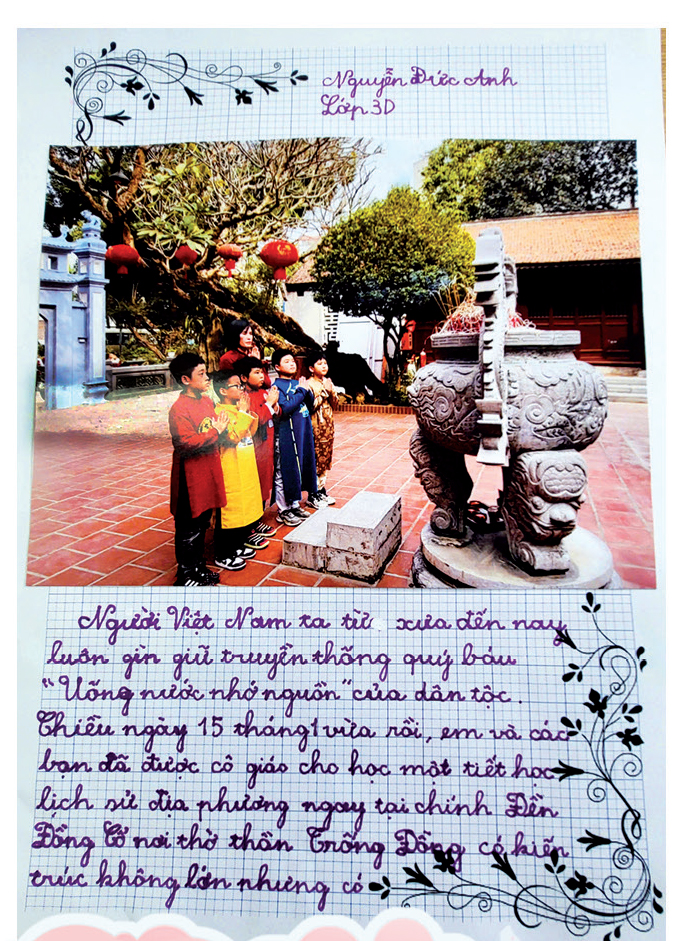 Nguyễn Đức Anh
Lớp 3D
Người Việt Nam ta từ xưa đến nay
luôn gìn giữ truyền thống quý báu
"Uống nước nhớ nguồn" của dân tộc.
Chiều ngày 15 tháng 1 vừa rồi, em và các
bạn đã được cô giáo cho học một tiết học
lịch sử địa phương ngay tại chính Đền
Đồng Cổ nơi thờ thần Trống Đồng có kiến
trúc không lớn nhưng có